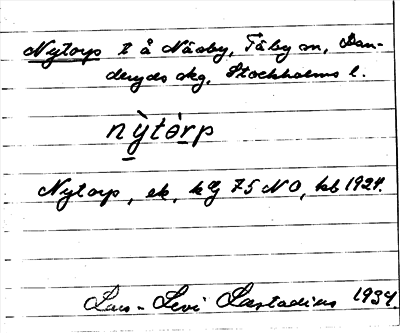 Nytorp t å Näsby, Täby sn, Dan-
deryds skg, Stockholms l.
nỳtòrp
Nytorp, ek, k bl 75 NO, kb 1924.
Lars-Levi Læstadius 1934.